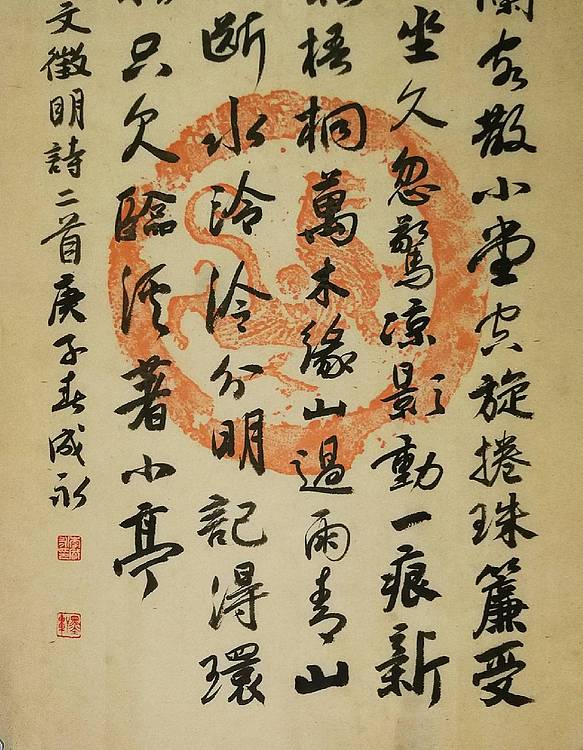 闌客散小堂空旋捲珠簾受
坐久忽驚涼影動一痕新
梧桐萬木緣山過雨青山
斷水泠泠分明記得環
只欠臨溪著小亭
文徵明詩二首庚子春成永